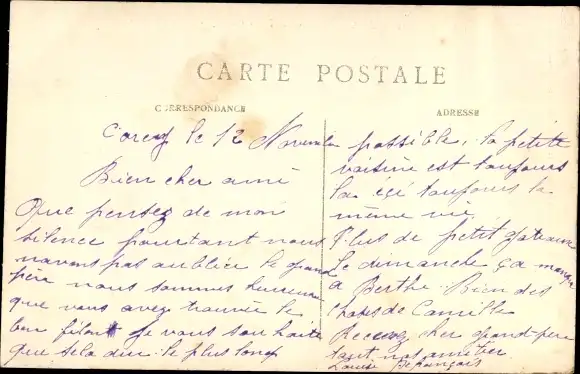 CARTE POSTALE
CORRESPONDANCE
le 12 Novembre
Bien cher ami
Que pensez de mon
silence pourtant nous
navons pas oubliée le grand
père nous sommes heureux
que vous avez trouvée le
bon filon je vous souhaite
que sela dur le plus long
ADRESSE
possible, la petite
voisine est toujours
la içi toujours la
même vie
Plus de petit gateaux
Le dimanche ça manque
a Berthe. Bien des
choses de Camille
Recevez cher grand-père
tout nos amitiés
Louise